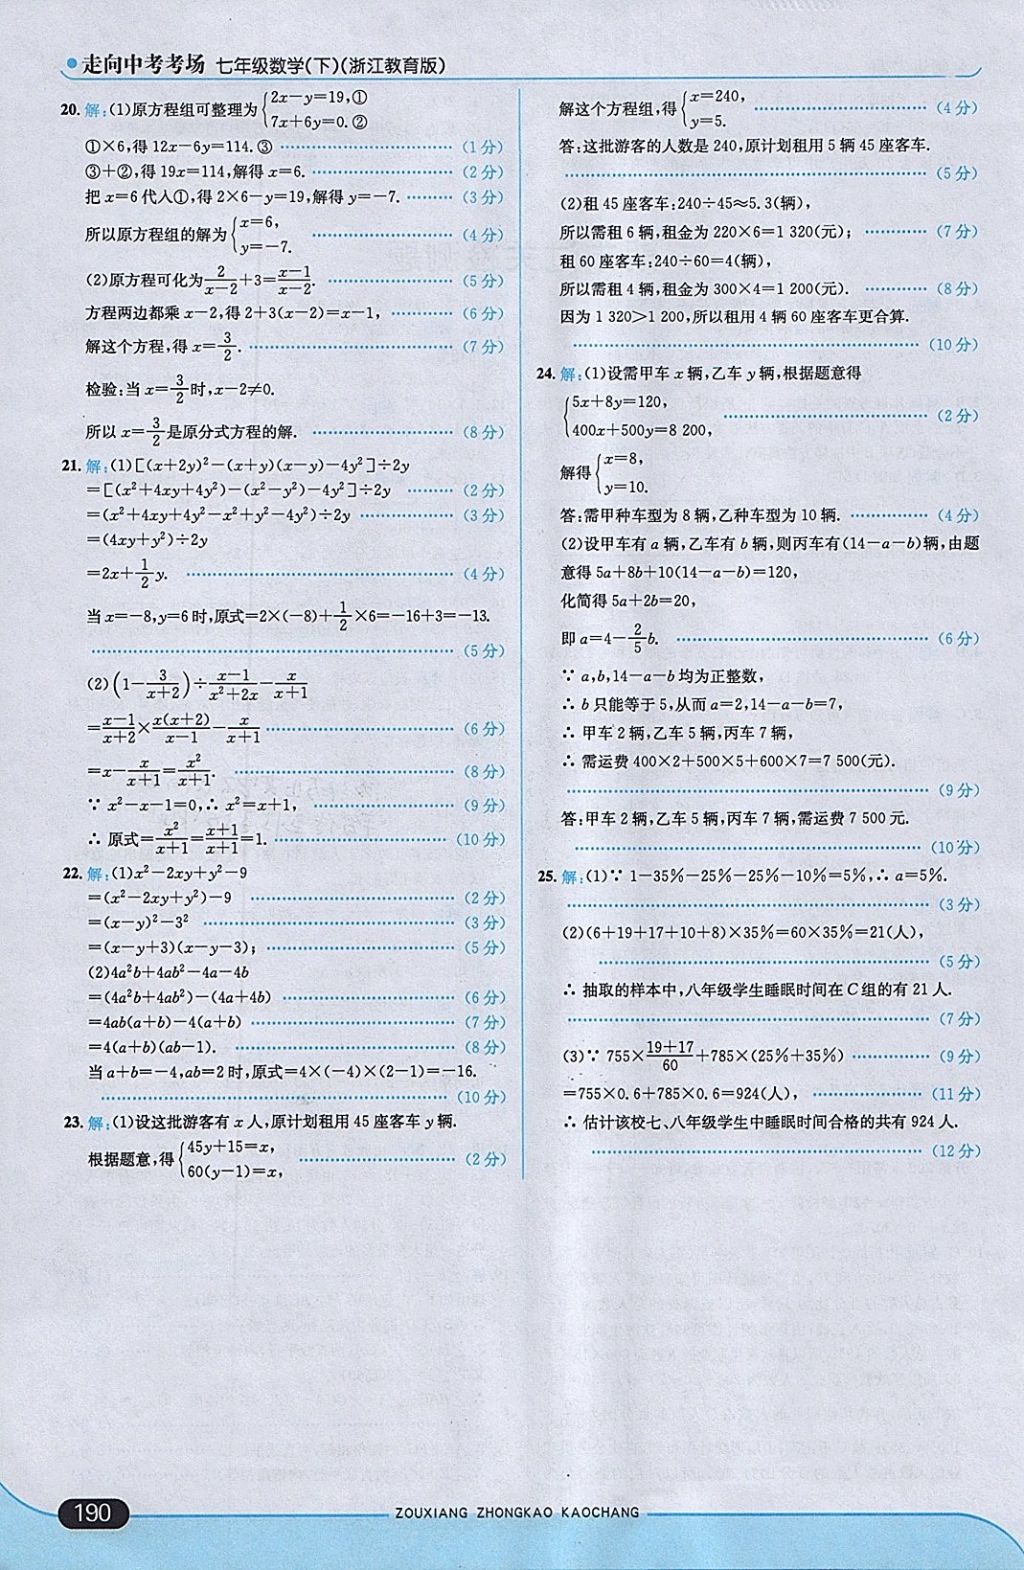 走向中考考场 七年级数学(下)(浙江教育版)
20. 解:(1)原方程组可整理为{2x-y=19,① 7x+6y=0.②
①×6,得 12x-6y=114.③ (1分)
③+②,得 19x=114,解得 x=6. (2分)
把 x=6 代人①,得 2×6-y=19,解得 y=-7. (3分)
所以原方程组的解为{x=6, y=-7. (4分)
(2)原方程可化为 2/(x-2)+3=(x-1)/(x-2). (5分)
方程两边都乘 x-2,得 2+3(x-2)=x-1, (6分)
解这个方程,得 x=3/2. (7分)
检验:当 x=3/2时,x-2≠0.
所以 x=3/2是原分式方程的解. (8分)
21. 解:(1)[(x+2y)²-(x+y)(x-y)-4y²]÷2y
=[(x²+4xy+4y²)-(x²-y²)-4y²]÷2y (2分)
=(x²+4xy+4y²-x²+y²-4y²)÷2y (3分)
=(4xy+y²)÷2y
=2x+1/2y. (4分)
当 x=-8,y=6 时,原式=2×(-8)+1/2×6=-16+3=-13.
(5分)
(2)(1-3/(x+2))÷(x-1)/(x²+2x)-x/(x+1)
=(x-1)/(x+2)×x(x+2)/(x-1)-x/(x+1) (6分)
=x-x/(x+1)=x²/(x+1). (8分)
∵ x²-x-1=0,∴ x²=x+1, (9分)
∴ 原式=x²/(x+1)=(x+1)/(x+1)=1. (10分)
22. 解:(1)x²-2xy+y²-9
=(x²-2xy+y²)-9 (2分)
=(x-y)²-3² (3分)
=(x-y+3)(x-y-3); (5分)
(2)4a²b+4ab²-4a-4b
=(4a²b+4ab²)-(4a+4b) (6分)
=4ab(a+b)-4(a+b) (7分)
=4(a+b)(ab-1). (8分)
当 a+b=-4,ab=2 时,原式=4×(-4)×(2-1)=-16.
(10分)
23. 解:(1)设这批游客有 x 人,原计划租用 45 座客车 y 辆.
根据题意,得{45y+15=x, 60(y-1)=x, (2分)
解这个方程组,得{x=240, y=5. (4分)
答:这批游客的人数是 240,原计划租用 5 辆 45 座客车.
(5分)
(2)租 45 座客车:240÷45≈5.3(辆),
所以需租 6 辆,租金为 220×6=1 320(元); (7分)
租 60 座客车:240÷60=4(辆),
所以需租 4 辆,租金为 300×4=1 200(元). (8分)
因为 1 320>1 200,所以租用 4 辆 60 座客车更合算.
(10分)
24. 解:(1)设需甲车 x 辆,乙车 y 辆,根据题意得
{5x+8y=120, 400x+500y=8 200, (2分)
解得{x=8, y=10.
答:需甲种车型为 8 辆,乙种车型为 10 辆. (4分)
(2)设甲车有 a 辆,乙车有 b 辆,则丙车有(14-a-b)辆,由题
意得 5a+8b+10(14-a-b)=120,
化简得 5a+2b=20,
即 a=4-2/5b. (6分)
∵ a,b,14-a-b 均为正整数,
∴ b 只能等于 5,从而 a=2,14-a-b=7,
∴ 甲车 2 辆,乙车 5 辆,丙车 7 辆,
∴ 需运费 400×2+500×5+600×7=7 500(元).
(9分)
答:甲车 2 辆,乙车 5 辆,丙车 7 辆,需运费 7 500 元.
(10分)
25. 解:(1)∵ 1-35%-25%-25%-10%=5%,∴ a=5%.
(3分)
(2)(6+19+17+10+8)×35%=60×35%=21(人),
(5分)
∴ 抽取的样本中,八年级学生睡眠时间在 C 组的有 21 人.
(7分)
(3)∵ 755×(19+17)/60+785×(25%+35%) (9分)
=755×0.6+785×0.6=924(人), (11分)
∴ 估计该校七、八年级学生中睡眠时间合格的共有 924 人.
(12分)
190
ZOUXIANG ZHONGKAO KAOCHANG